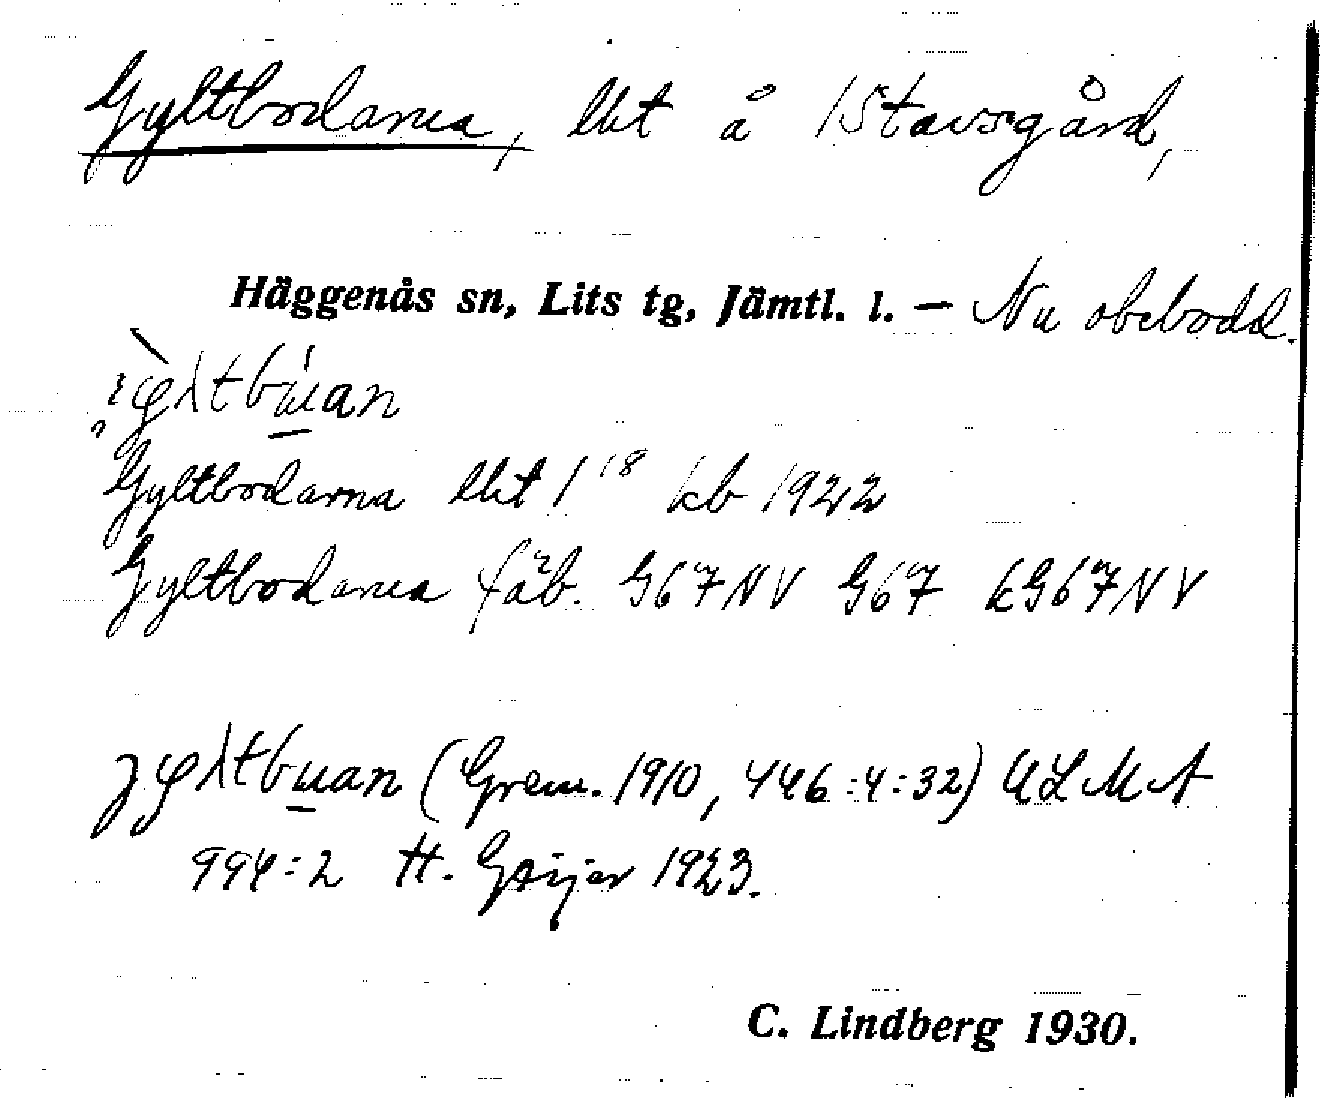 Gyltbodarna, lht å 1 Stavsgård,
Häggenås sn, Lits tg, Jämtl. l. – Nu obebodd.
Gyltbodarna lht 1 18 kb 1922
Gyltbodarna fäb. G67NV G67 kG67NV
(Grem. 1910, 446:4:32) ULMA
994:2 H. Geijer 1923.
C. Lindberg 1930.